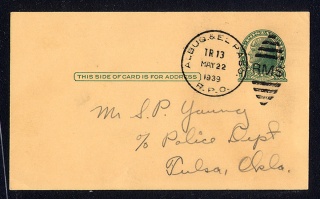 ALBUQ. & EL PASO
TR 13
MAY 22
1939
R.P.O.
RMS
THIS SIDE OF CARD IS FOR ADDRESS
Mr S.P. Young
% Police Dept
Tulsa, Okla.